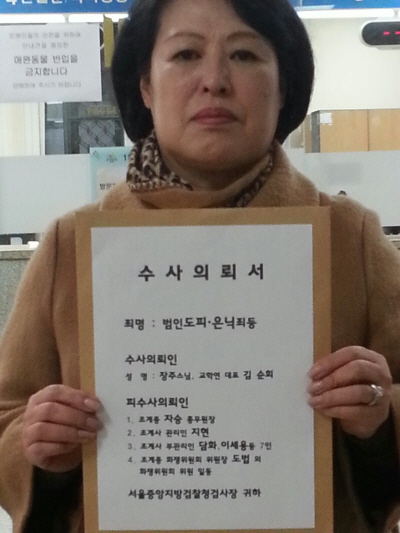 애완동물 반입을
금지합니다
수사의뢰서
죄명 : 범인도피·은닉죄등
수사의뢰인
성 명 : 장주스님, 교학연 대표 김 순희
피수사의뢰인
1. 조계종 자승 총무원장
2. 조계사 관리인 지현
3. 조계사 부관리인 담화,이세용등 7인
4. 조계종 화쟁위원회 위원장 도법 외
화쟁위원회 위원 일동
서울중앙지방검찰청검사장 귀하